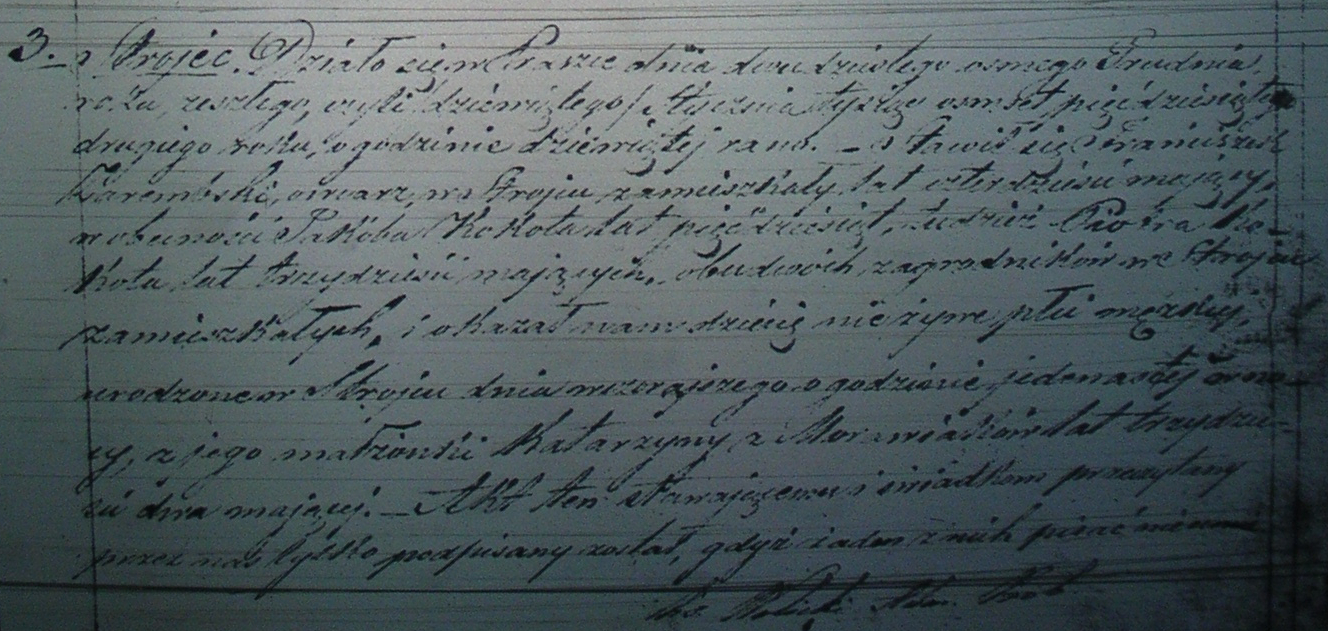 3. Strojec. Działo się w Praszce dnia dwudziestego osmego Grudnia,
roku, zeszłego, czyli dziewiątego/ Stycznia tysiąc osmset pięćdziesiątego
drugiego roku, o godzinie dziewiątej rano. – Stawił się Franciszek
Zarembski, owczarz, we Stroju zamieszkały, lat czterdzieści mający,
w obecności Jakóba Kokota lat pięćdziesiąt, tudzież Piotra Ko-
kota lat trzydzieści mających, obudwóch zagrodników we Stroju
zamieszkałych, i okazał nam dziecię nieżywe, płci męzkiej,
urodzone w Stroju dnia wczorajszego o godzinie jedenastej w no-
cy, z jego małżonki Katarzyny z Morawiaków lat trzydzie-
ści dwa mającej. – Akt ten stawającemu i świadkom przeczytany
przez nas tylko podpisany został, gdyż żaden z nich pisać nieumie